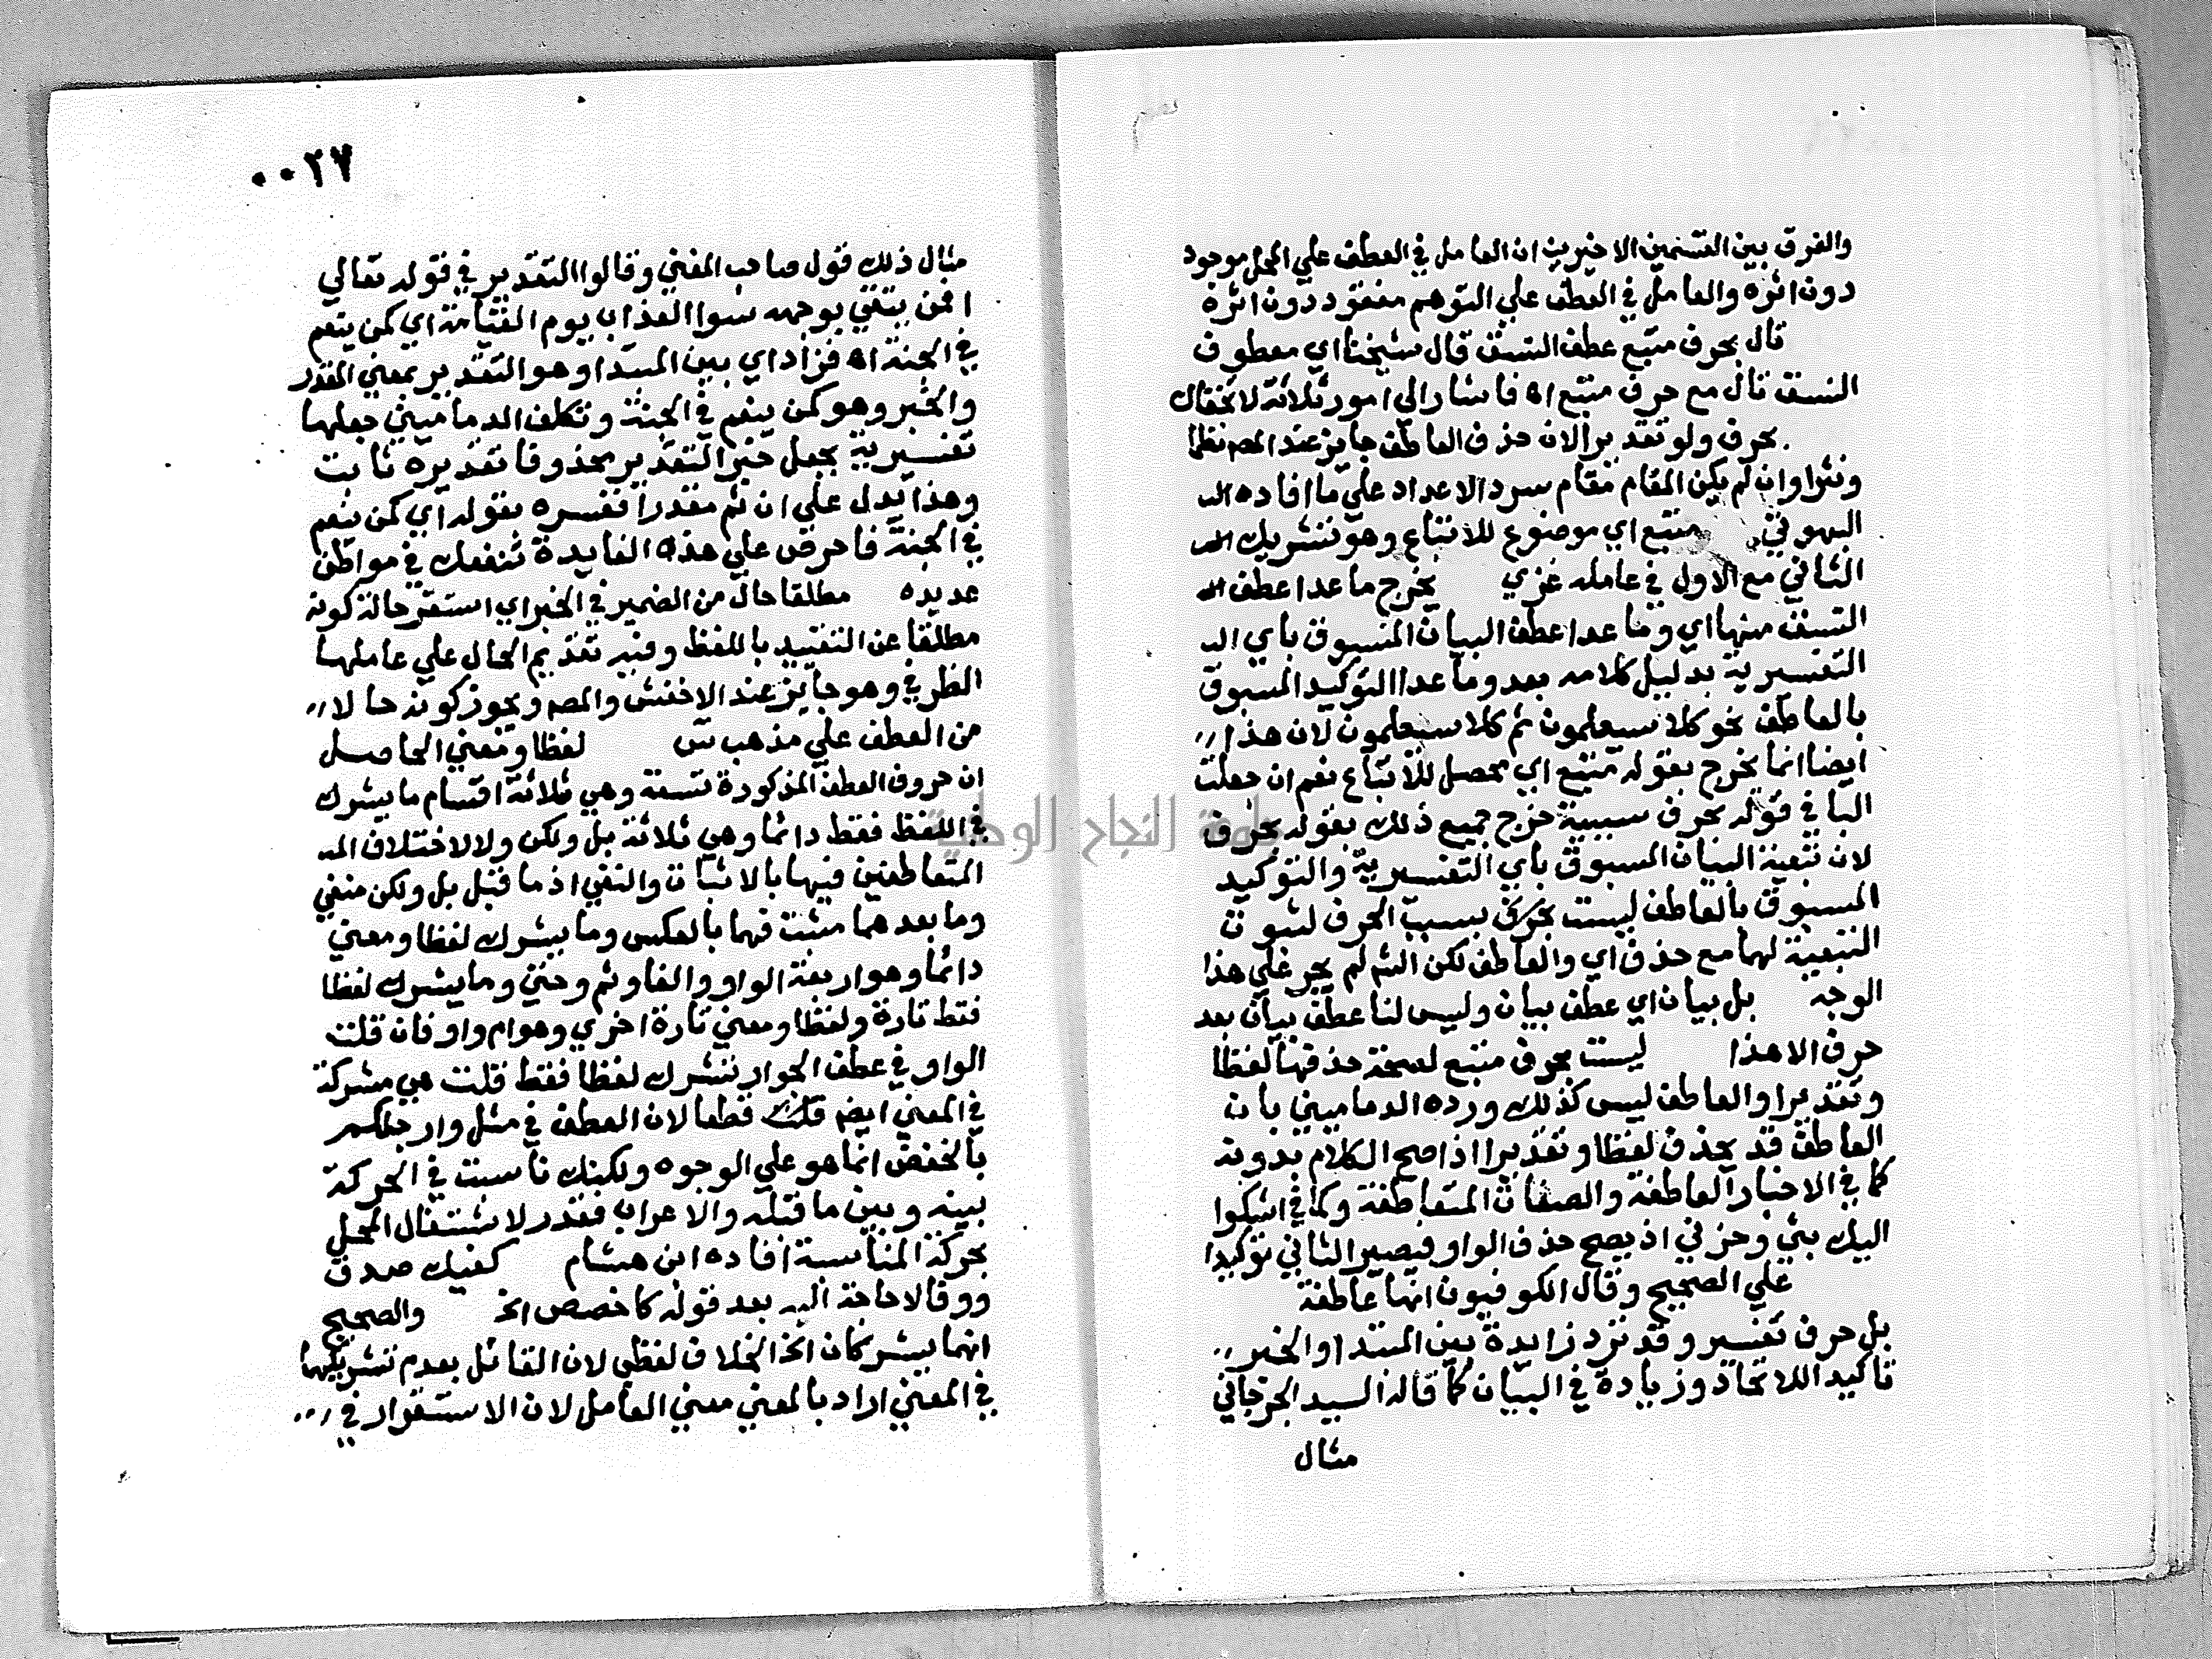 والفرق بين القسمين الاخيرين ان العامل في العطف علي المحل موجود
دون اثره والعامل في العطف علي التوهم مفقود دون اثره
قال بحرف متبع عطف النسق قال شيخنا اي معطوف
النسق تال مع حرف متبع اه فاشار الي امور ثلاثة لا تخفاك
بحرف ولو تقديرا لان حذف العاطف جايز عند المصم نظما
ونثرا وان لم يكن المقام مقام سرد الاعداد علي ما افاده الد
البهوتي متبع اي موضوع للاتباع وهو تشريك الد
الثاني مع الاول في عامله غزي يخرج ما عدا عطف الد
النسق منها اي وما عدا عطف البيان المسبوق باي الد
التفسيرية بدليل كلامه بعد وما عدا التوكيد المسبوق
بالعاطف نحو كلا سيعلمون ثم كلا سيعلمون لان هذا
ايضا انما يخرج بقوله متبع اي محصل للاتباع نعم ان جعلت
البا في قوله بحرف سببية خرج جميع ذلك بقوله بحرف
لان تبعية البيان المسبوق باي التفسيرية والتوكيد
المسبوق بالعاطف ليست بحرف بسبب الحرف لثبوت
التبعية لهما مع حذف اي والعاطف لكن الشم لم يجر علي هذا
الوجه بل بيان اي عطف بيان وليس لنا عطف بيان بعد
حرف الا هذا ليست بحرف متبع لصحة حذفها لفظا
وتقديرا والعاطف ليس كذلك ورده الدماميني بان
العاطف قد يحذف لفظا وتقديرا اذا صح الكلام بدونه
كما في الاخبار العاطفة والصفات المتعاطفة وكما في اشكوا
اليك بثي وحزني اذ يصح حذف الواو فيصير الثاني توكيدا
علي الصحيح وقال الكوفيون انها عاطفة
بل حرف تفسير وقد تزد زايدة بين المبتدا والخبر
تاكيد اللاتحاد وزيادة في البيان كما قاله السيد الجرجاني
مثال
٠٠٢٧
مثال ذلك قول صاحب المغني وقالوا التقدير في قوله تعالي
افمن يتقي بوجهه سوا العذاب يوم القيامة اي كمن ينعم
في الجنة اه فزاد اي بين المبتدا وهو التقدير بمعني المقدر
والخبر وهو كمن ينعم في الجنة وتكلف الدماميني جعلها
تفسيرية بجعل خبر التقدير محذوفا تقديره ثابت
وهذا يدل علي ان ثم مقدرا ففسره بقوله اي كمن ينعم
في الجنة فاحرص علي هذه الفايدة تنفعك في مواطن
عديده مطلقا حال من الضمير في الخبر اي استقر حالة كونه
مطلقا عن التقييد باللفظ وفيه تقديم الحال علي عاملها
الظرفي وهو جايز عند الاخفش والمصم ويجوز كونه حالا
من العطف علي مذهب س لفظا ومعني الحاصل
ان حروف العطف المذكورة تسعة وهي ثلاثة اقسام ما يشرك
في اللفظ فقط دائما وهي ثلاثة بل ولكن ولا لاختلاف المد
المتعاطفين فيها بالاثبات والنفي اذ ما قبل بل ولكن منفي
وما بعدهما مثبت فهما بالعكس وما يشرك لفظا ومعني
دائما وهو اربعة الواو والفا وثم وحتي وما يشرك لفظا
فقط تارة ولفظا ومعني تارة اخري وهو ام واو فان قلت
الواو في عطف الجوار تشرك لفظا فقط قلت هي مشركة
في المعني ايضم قطعا لان العطف في مثل وارجلكم
بالخفض انما هو علي الوجوه ولكنك ناسبت في الحركة
بينه وبين ما قبله والاعراب مقدر لاشتغال المحل
بحركة المناسبة افاده ابن هشام كفيك صدق
ووفا لا حاجة اليه بعد قوله كاخصص الخ والصحيح
انهما يشركان الخ الخلاف لفظي لان القائل بعدم تشريكهما
في المعني اراد بالمعني معني العامل لان الاستقرار في